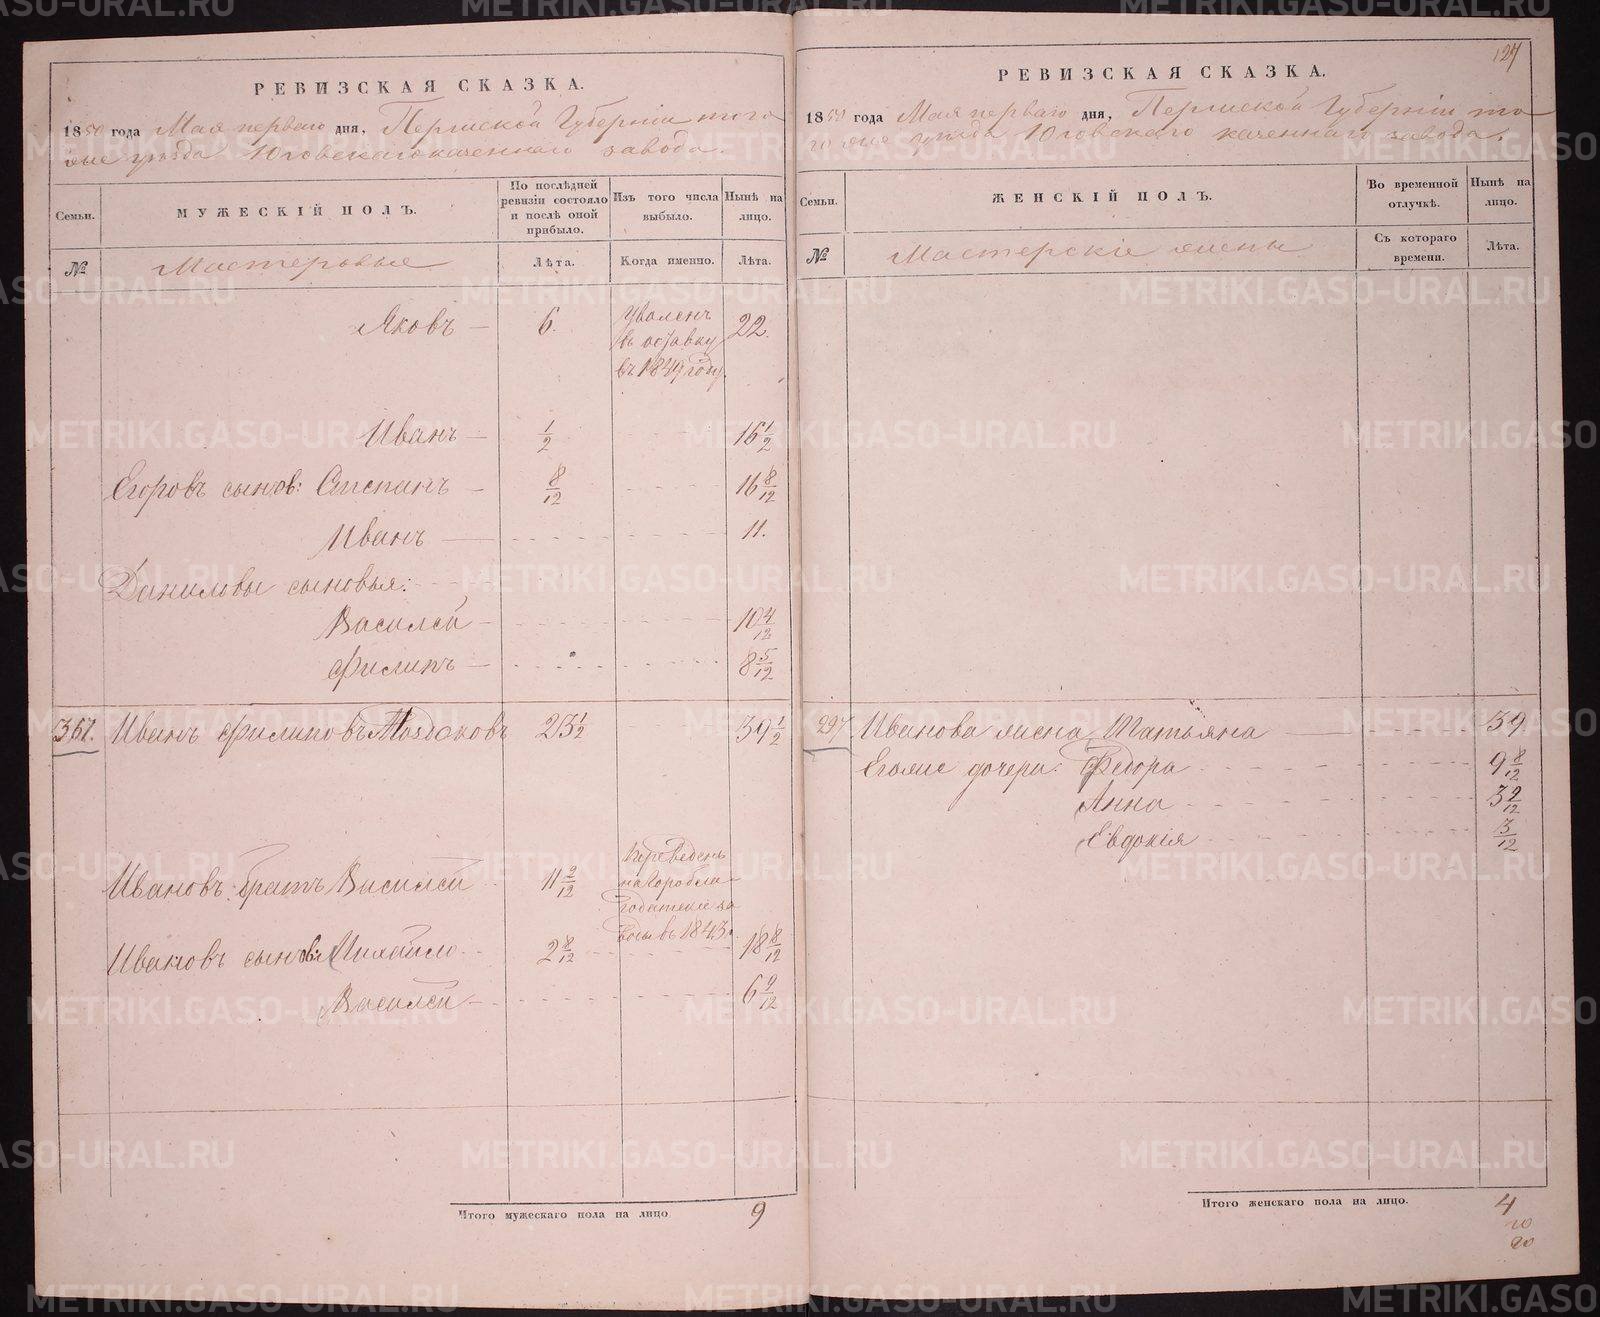 РЕВИЗСКАЯ СКАЗКА.
1850 года Мая перваго дня, Пермской Губернiи того
же уѣзда Юговскаго казеннаго завода.
Семьи.
МУЖЕСКIЙ ПОЛЪ.
По послѣдней ревизiи состояло и послѣ оной прибыло.
Изъ того числа выбыло.
Нынѣ на лицо.
№
Мастеровые
Лѣта.
Когда именно.
Лѣта.
Яковъ 6. Уволенъ въ отставку въ 1849 году. 22.
Иванъ 1/2 16 1/2
Егоровъ сынов: Степанъ 8/12 16 8/12
Иванъ 11.
Даниловы сыновья:
Василей 10 4/12
Филипъ 8 5/12
367. Иванъ Филиповъ 23 1/2 39 1/2
Ивановъ братъ Василей 11 2/12 Переведенъ на Горобла-
годатскiе за
воды въ 1843.
Ивановъ сынов: Михайло 2 8/12 18 8/12
Василей 6 9/12
Итого мужескаго пола на лицо 9
127
РЕВИЗСКАЯ СКАЗКА.
1850 года Мая перваго дня, Пермской Губернiи то
го же уѣзда Юговскаго казеннаго завода.
Семьи.
ЖЕНСКIЙ ПОЛЪ.
Во временной отлучкѣ.
Нынѣ на лицо.
№
Мастерскiе жены
Съ котораго времени.
Лѣта.
297 Иванова жена Татьяна 39
Егоже дочери: Федора 9 8/12
Анна 3 9/12
Евдокiя 3/12
Итого женскаго пола на лицо. 4
METRIKI.GASO-URAL.RU